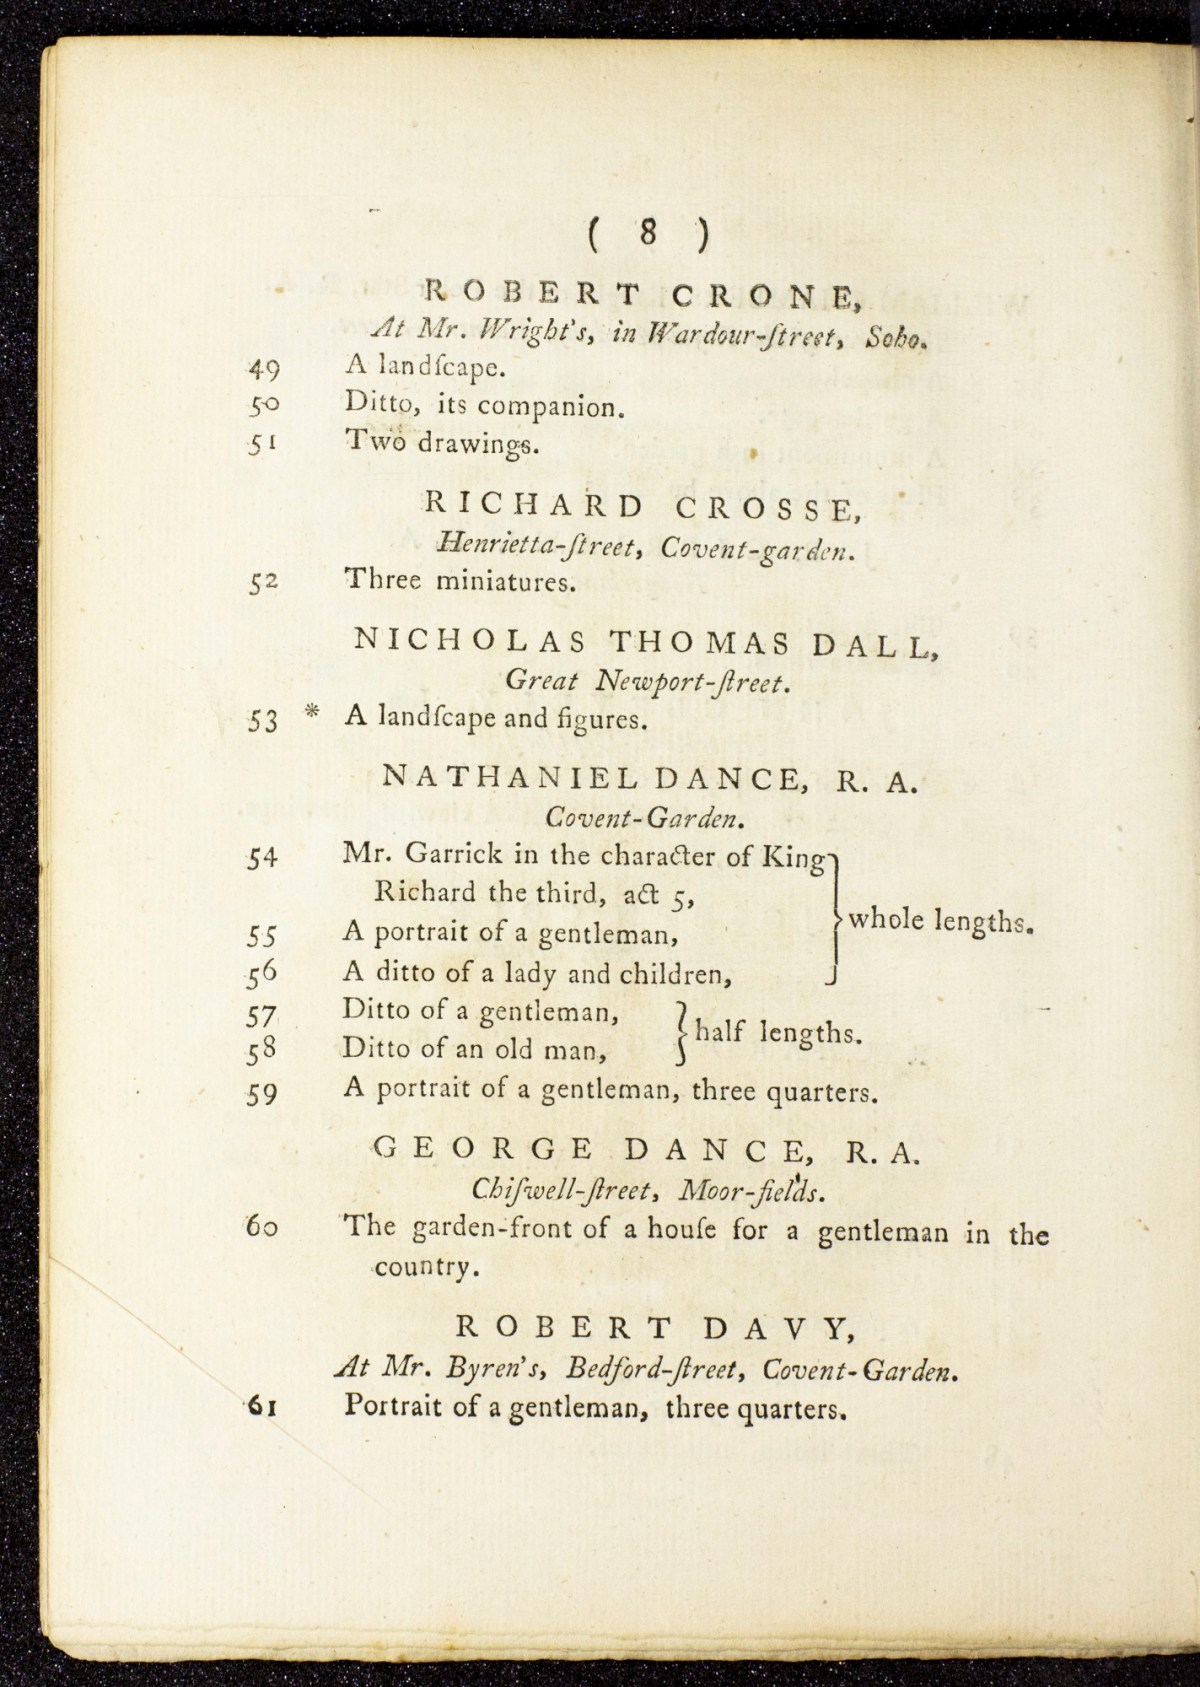 ( 8 )
ROBERT CRONE,
At Mr. Wright's, in Wardour-ſtreet, Soho.
49 A landſcape.
50 Ditto, its companion.
51 Two drawings.
RICHARD CROSSE,
Henrietta-ſtreet, Covent-garden.
52 Three miniatures.
NICHOLAS THOMAS DALL,
Great Newport-ſtreet.
53 * A landſcape and figures.
NATHANIEL DANCE, R. A.
Covent-Garden.
54 Mr. Garrick in the character of King
Richard the third, act 5,
55 A portrait of a gentleman,
56 A ditto of a lady and children,
whole lengths.
57 Ditto of a gentleman,
58 Ditto of an old man,
half lengths.
59 A portrait of a gentleman, three quarters.
GEORGE DANCE, R. A.
Chiſwell-ſtreet, Moor-fields.
60 The garden-front of a houſe for a gentleman in the
country.
ROBERT DAVY,
At Mr. Byren's, Bedford-ſtreet, Covent-Garden.
61 Portrait of a gentleman, three quarters.